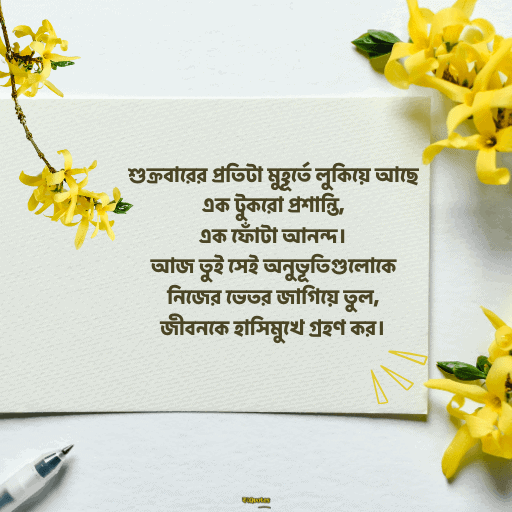 শুক্রবারের প্রতিটা মুহূর্তে লুকিয়ে আছে
এক টুকরো প্রশান্তি,
এক ফোঁটা আনন্দ।
আজ তুই সেই অনুভূতিগুলোকে
নিজের ভেতর জাগিয়ে তুল,
জীবনকে হাসিমুখে গ্রহণ কর।